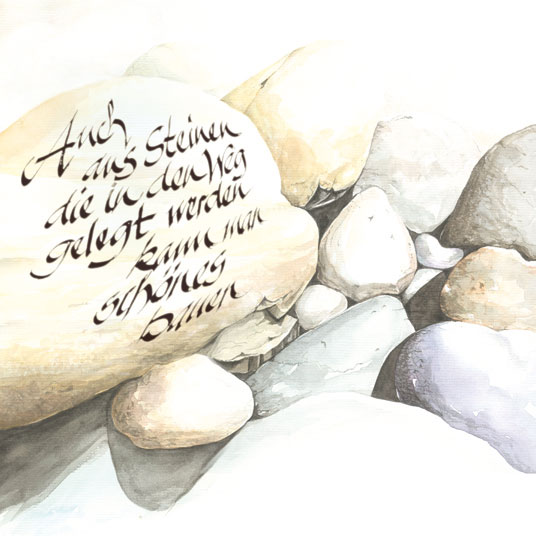 Auch
aus Steinen
die in den Weg
gelegt werden
kann man
schönes
bauen